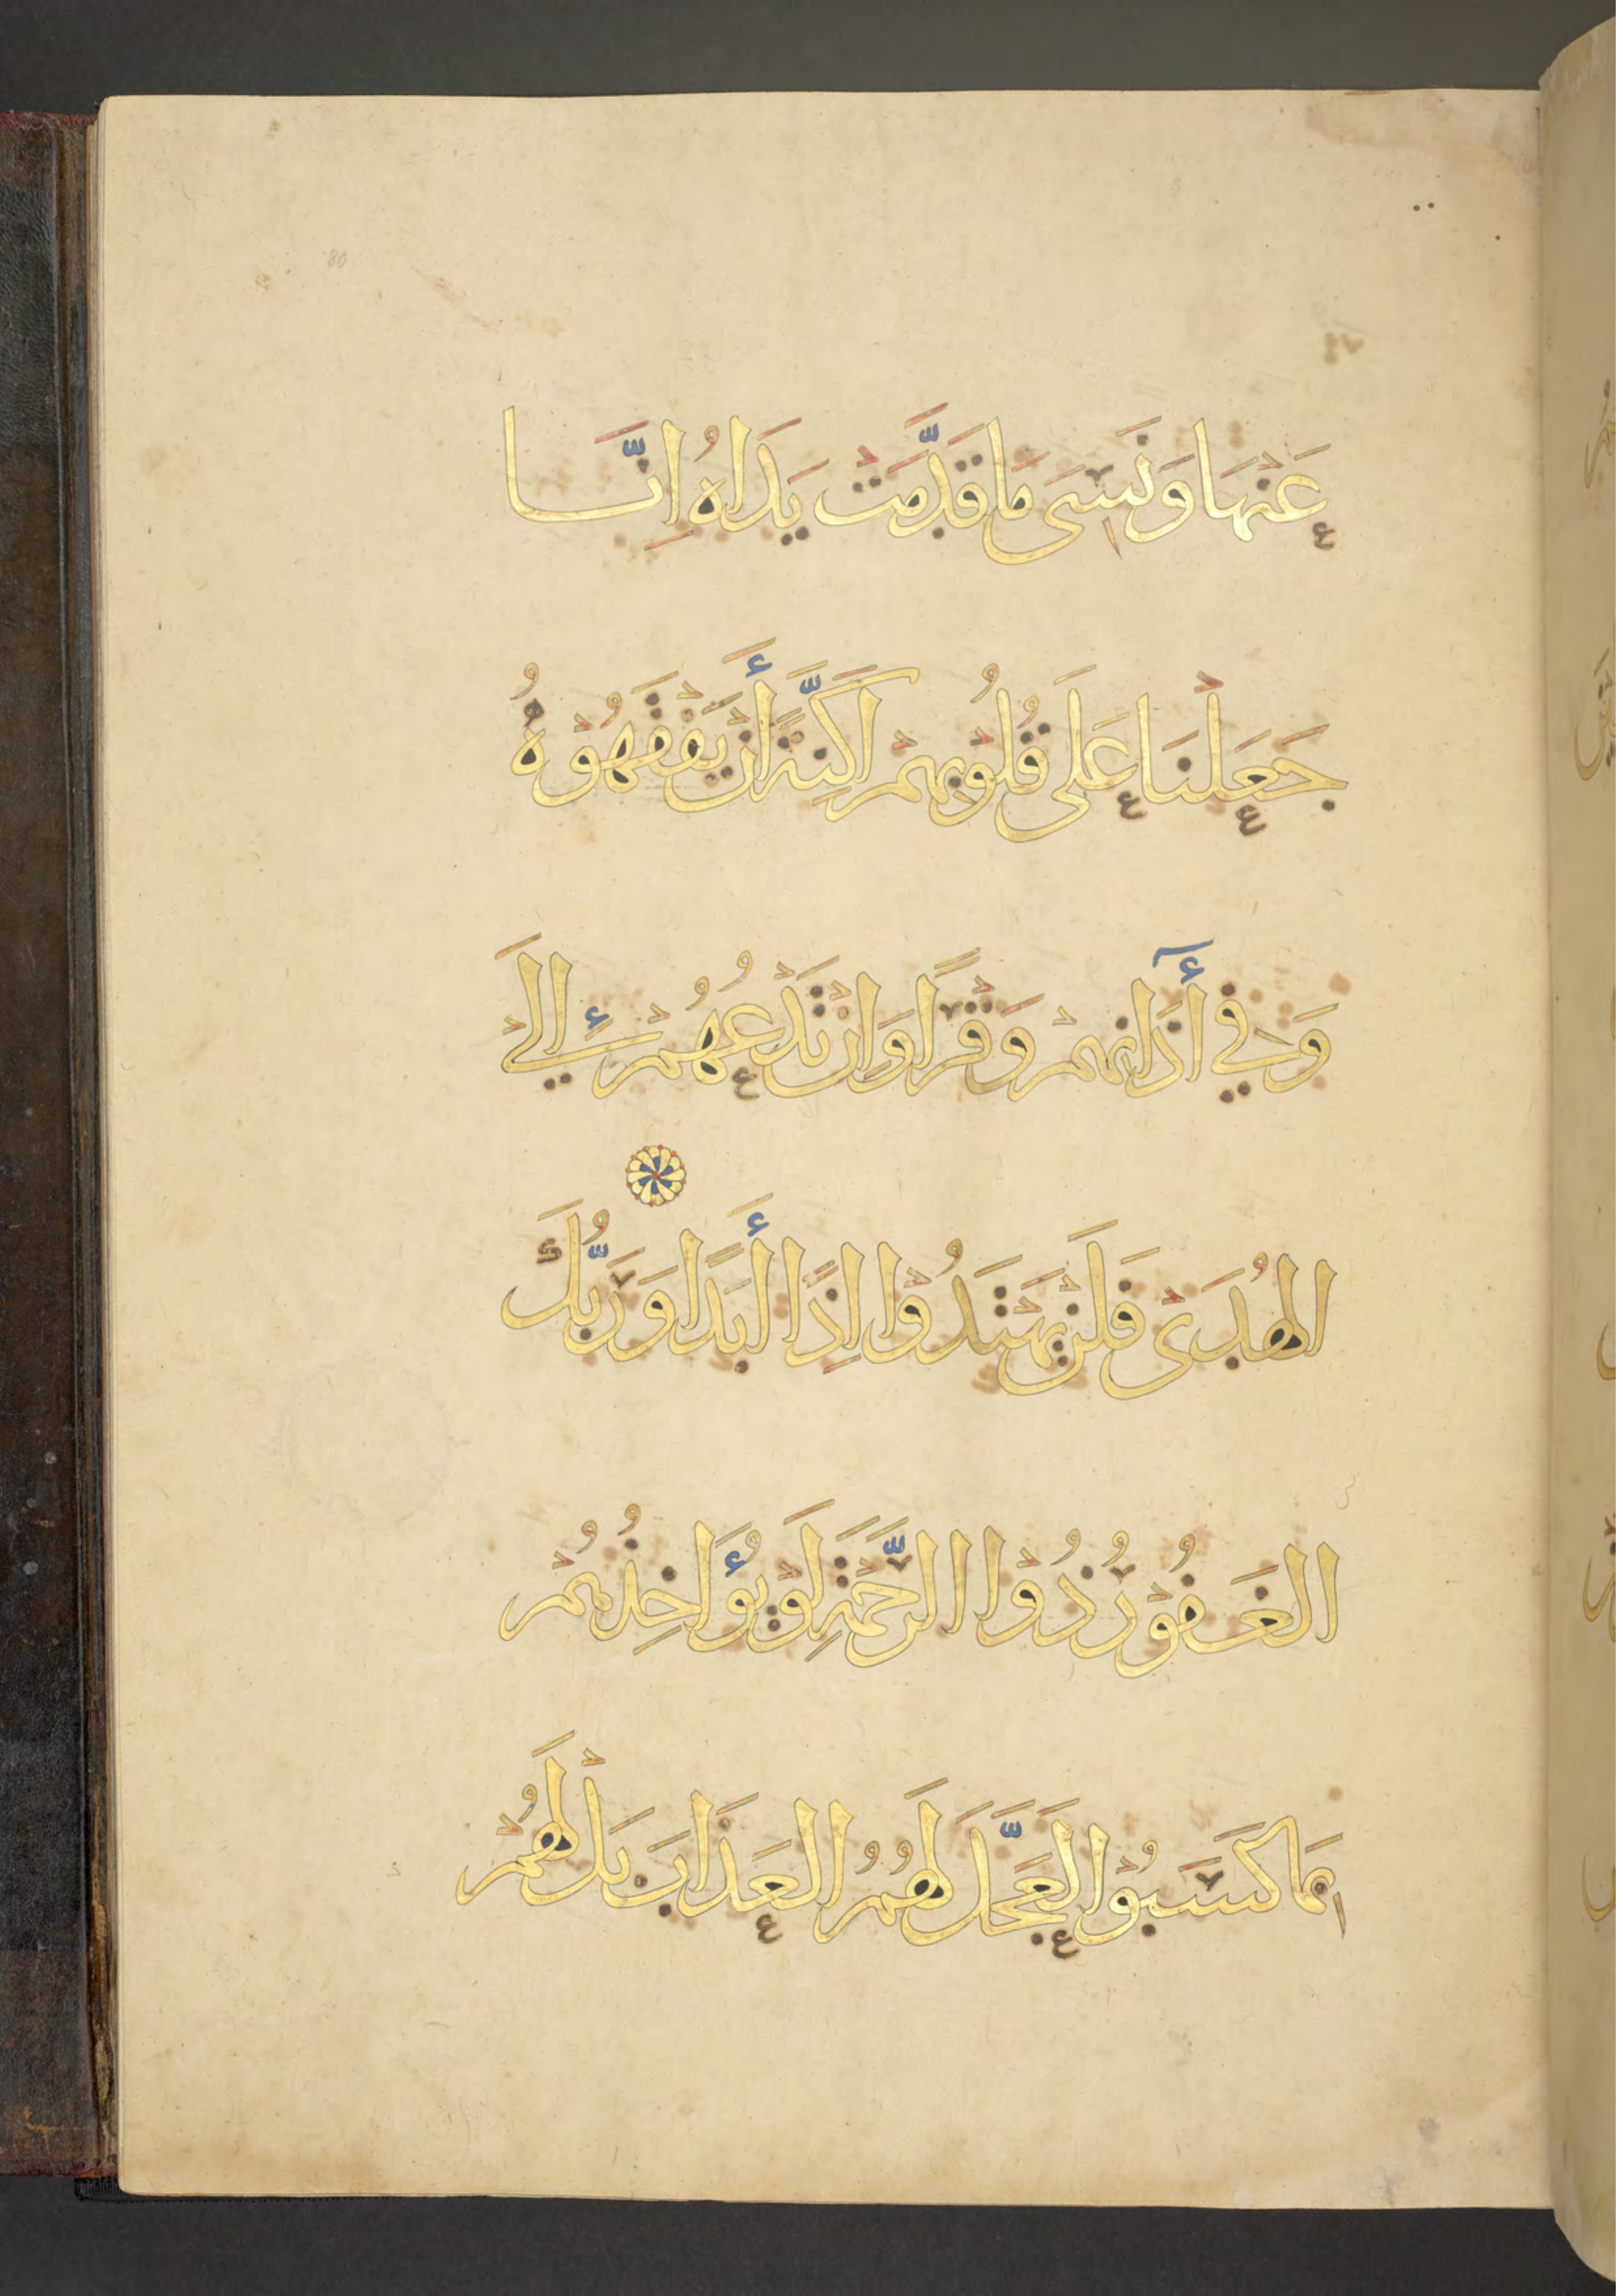 80
عَنْهَا وَنَسِىَ مَا قَدَّمَتْ يَدَاهُ اِنَّا
جَعَلْنَا عَلَى قُلُوْبِهِمْ اَكِنَّةً أَنْ يَفْقَهُوْهُ
وَفِيْ أٓذَانِهِمْ وَقْرًا وَاِنْ تَدْعُهُمْ إِلَى
الْهُدَىْ فَلَنْ يَهْتَدُوْا اِذًا أَبَدًا وَرَبُّكَ
الْغَفُوْرُ ذُوْا الرَّحْمَةِ لَوْ يُؤَاخِذُهُمْ
بِمَا كَسَبُوْا لَعَجَّلَ لَهُمُ الْعَذَابَ بَلْ لَهُمْ